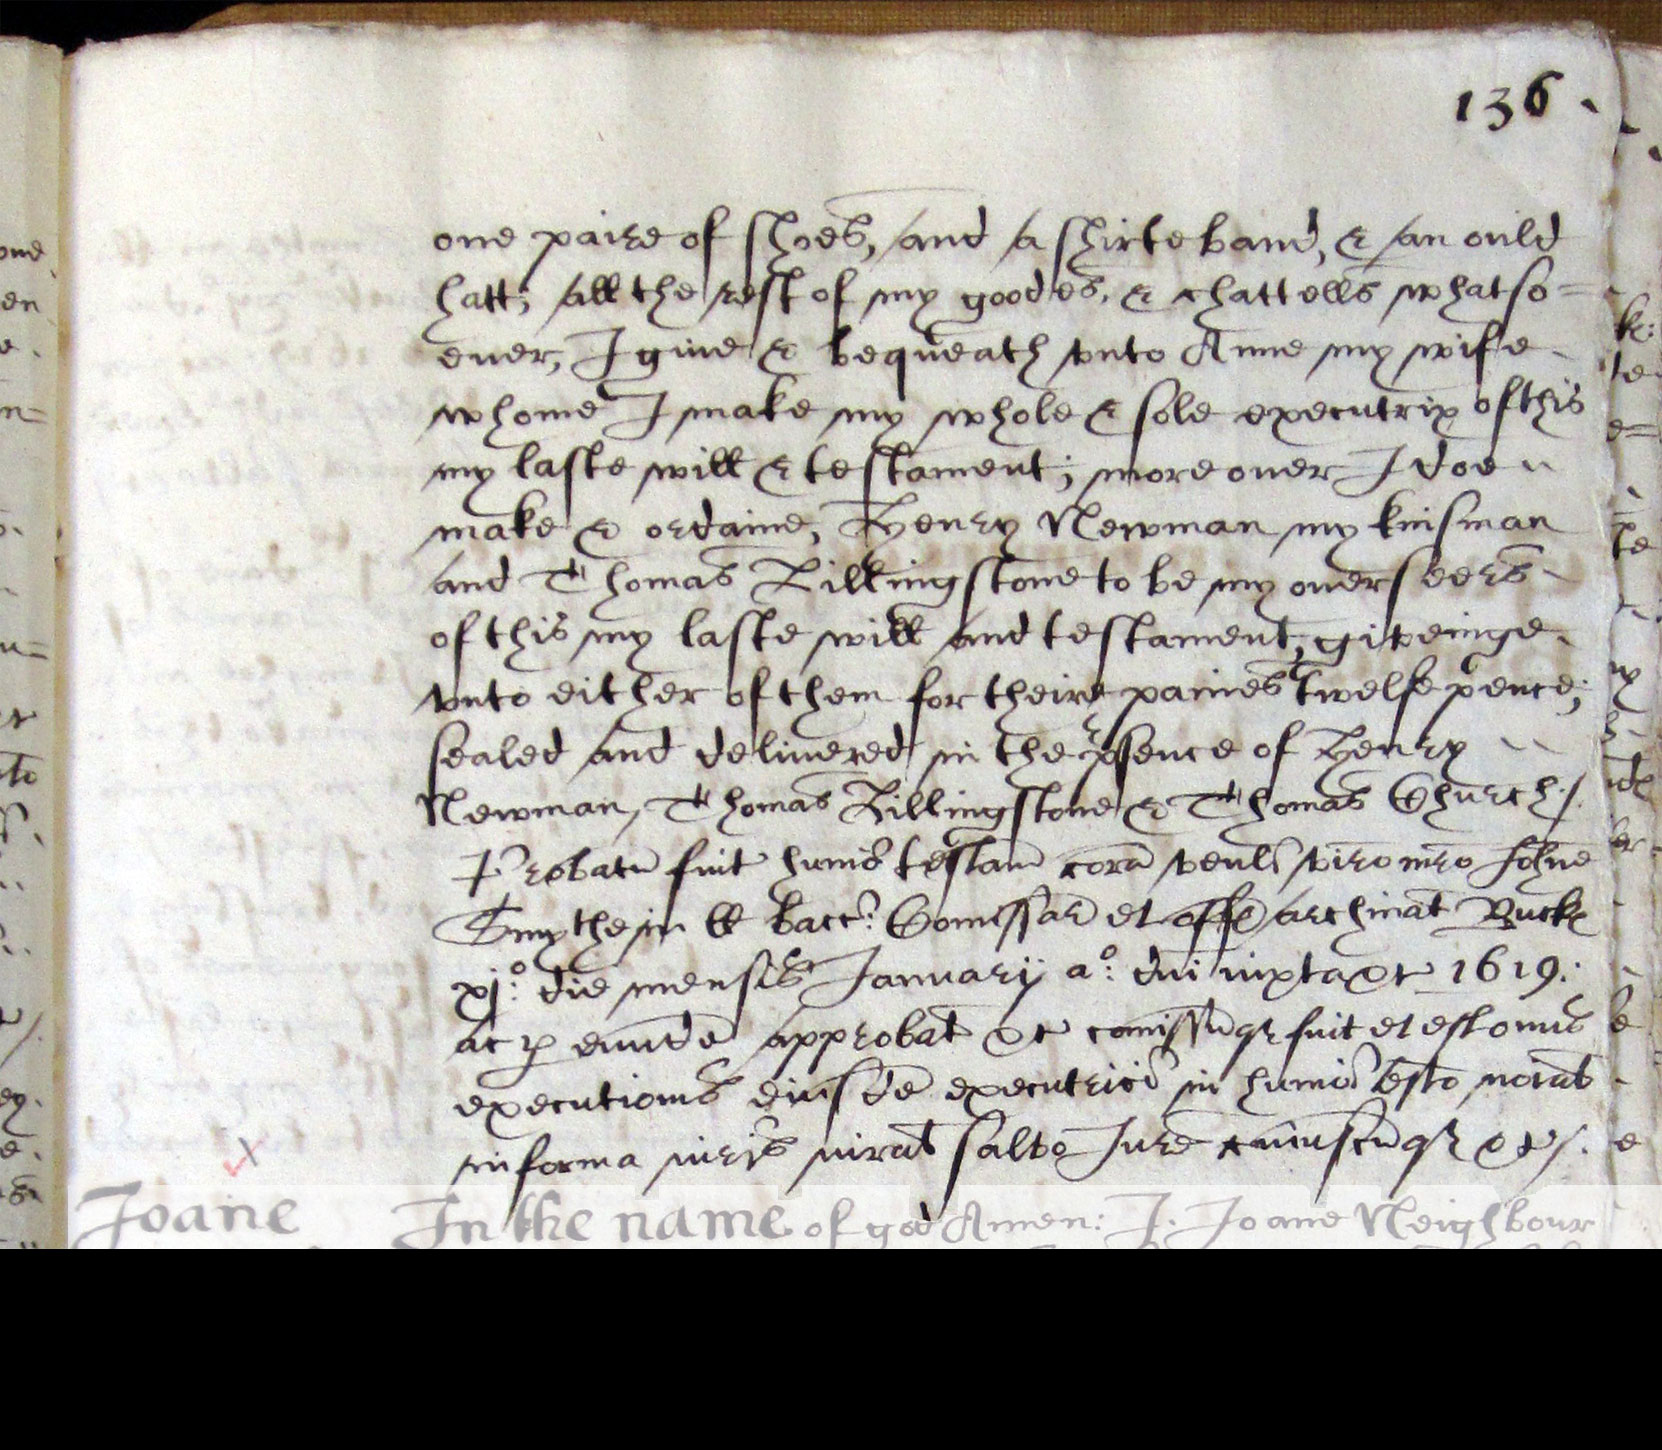 136
one paire of shoes, and a shirte band, & an ould
hatt; all the rest of my goodes, & chattells whatso=
euer, I giue & bequeath vnto Anne my wife
whome I make my whole & sole executrix of this
my laste will & testament; more ouer I doe
make & ordaine, Henry Newman my kinsman
and Thomas Killingstone to be my ouerseers
of this my laste will and testament, giveinge
vnto either of them for theire paines twelfe pence;
sealed and deliuered in the psence of Henry
Newman, Thomas Killingstone & Thomas Church./
Probatu fuit huius testam cora venli viro mro Johne
Smythe in ll bacc: Comissar et offi archinat Buck
xjo: die mensis January ao: dni iuxta &c 1619:
ac p eunde approbat &c comissuqz fuit et est onus
executionis eiusde executrici in huiusi testo noiat
in forma iuris iurat salvo Jure cuiuscuqz &c/.
Joane In the name of god Amen: I. Joane Neighbour